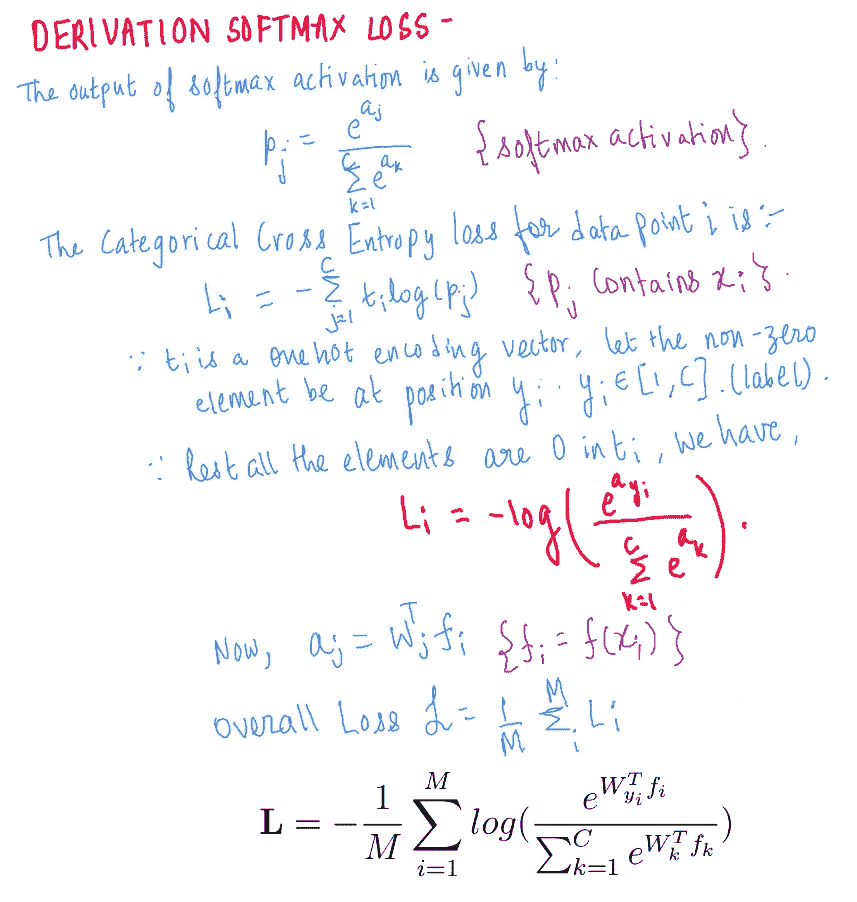 DERIVATION SOFTMAX LOSS -
The output of softmax activation is given by:
p_j = e^{a_j} / \sum_{k=1}^{C} e^{a_k} {softmax activation}.
The Categorical Cross Entropy loss for data point i is :-
L_i = - \sum_{j=1}^{C} t_i log(p_j) {P_j contains x_i}.
∵ t_i is a one hot encoding vector, let the non-zero
element be at position y_i. y_i ∈ [1, C]. (label).
∵ Rest all the elements are 0 in t_i, we have,
L_i = -log( e^{a_{y_i}} / \sum_{k=1}^{C} e^{a_k} ).
Now, a_j = W_j^T f_i {f_i = f(x_i)}
Overall Loss L = 1/M \sum_i^M L_i
L = - 1/M \sum_{i=1}^{M} log( e^{W_{y_i}^T f_i} / \sum_{k=1}^{C} e^{W_k^T f_k} )